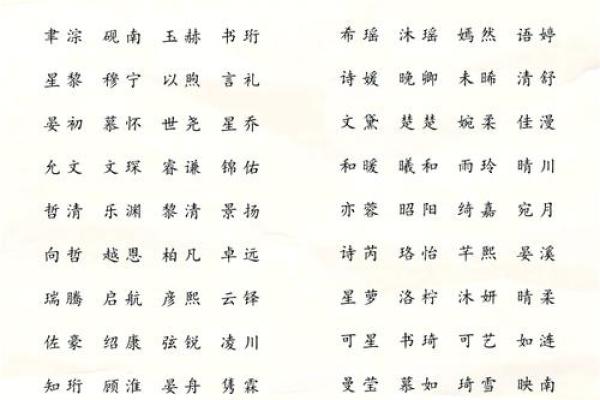 聿淙 砚南 玉赫 书珩
星黎 穆宁 以煦 言礼
晏初 慕怀 世尧 星乔
允文 文琛 睿谦 锦佑
哲清 乐渊 黎清 景扬
向哲 越恩 柏凡 卓远
瑞腾 启航 彦熙 云铎
佐豪 绍康 弦锐 凌川
知珩 顾淮 晏舟 隽霖
希瑶 沐瑶 嫣然 语婷
诗媛 晚卿 未晞 清舒
文黛 楚楚 婉柔 佳漫
和暖 曦和 雨玲 晴川
亦蓉 昭阳 绮嘉 宛月
诗芮 珞怡 芊熙 晏溪
星萝 洛柠 沐妍 晴柔
可星 书琦 可艺 如涟
曼莹 慕如 琦雪 映南